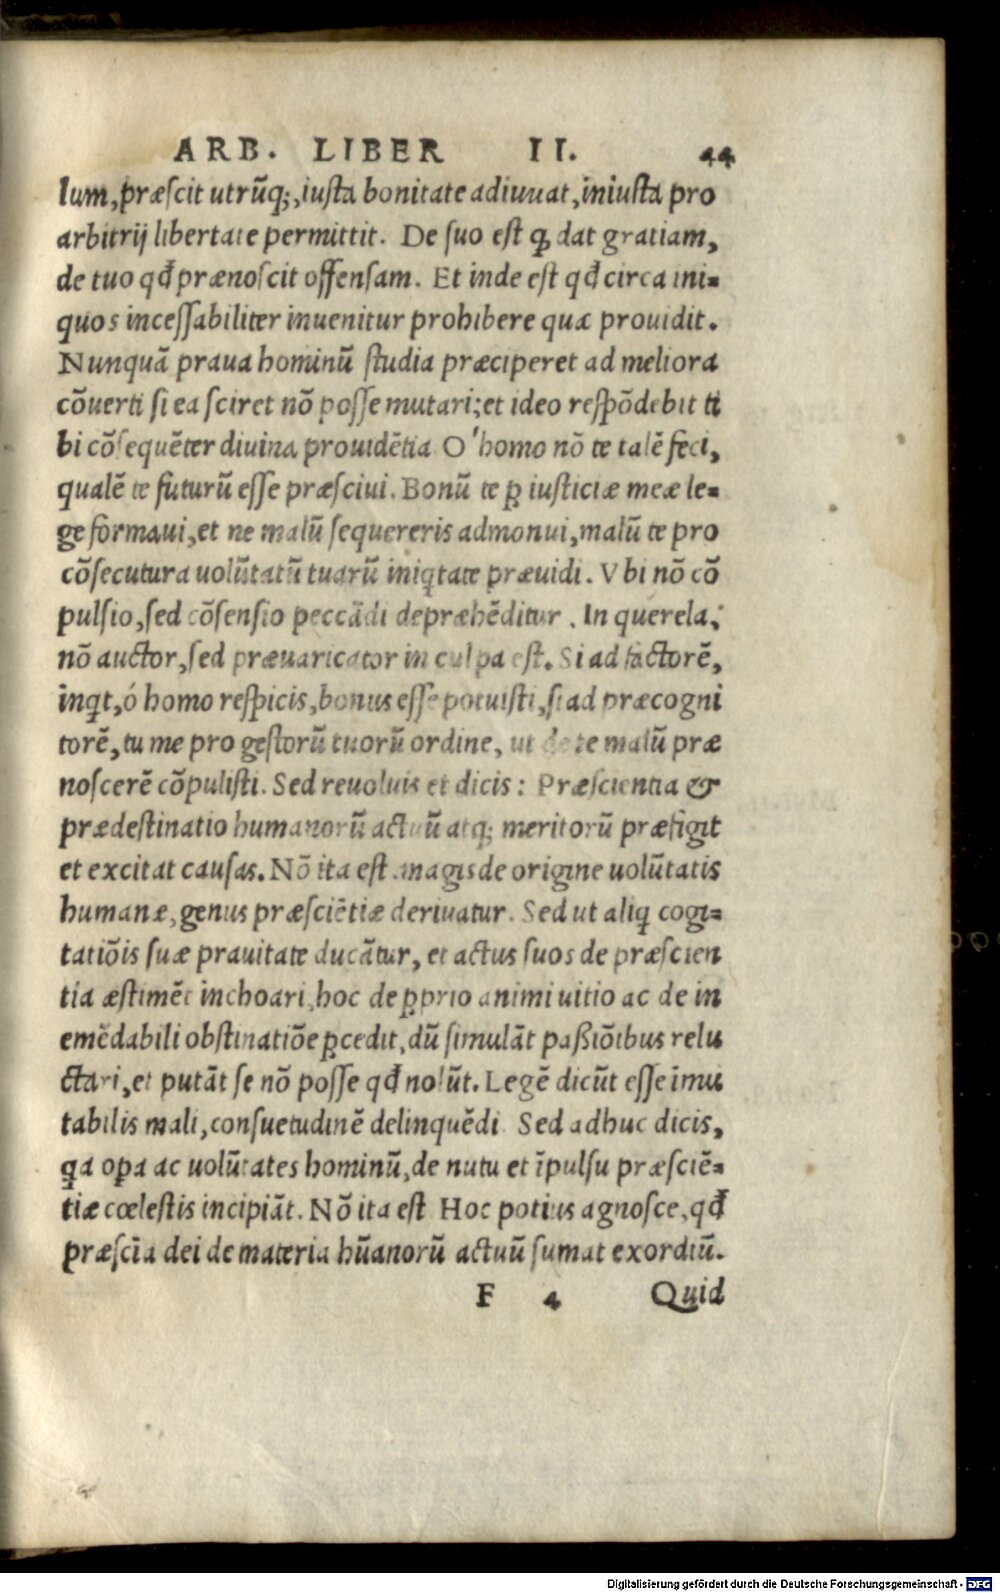 ARB. LIBER II. 44
lum, præscit utrũq;, iusta bonitate adiuuat, iniusta pro
arbitrij libertate permittit. De suo est ꝙ dat gratiam,
de tuo qđ prænoscit offensam. Et inde est qđ circa ini=
quos incessabiliter inuenitur prohibere quæ prouidit.
Nunquã praua hominũ studia præciperet ad meliora
cõuerti si ea sciret nõ posse mutari; et ideo respõdebit ti
bi cõsequẽter diuina prouidẽtia O' homo nõ te talẽ feci,
qualẽ te futurũ esse præsciui. Bonũ te ꝑ iusticiæ meæ le=
ge formaui, et ne malũ sequereris admonui, malũ te pro
cõsecutura uolũtatũ tuarũ iniq̃tate præuidi. Vbi nõ cõ
pulsio, sed cõsensio peccãdi depræhẽditur. In querela,
nõ auctor, sed præuaricator in culpa est. Si ad factorẽ,
inq̃t, ó homo respicis, bonus esse potuisti, si ad præcogni
torẽ, tu me pro gestorũ tuorũ ordine, ut de te malũ præ
noscerẽ cõpulisti. Sed reuoluis et dicis: Præscientia &
prædestinatio humanorũ actuũ atq; meritorũ præfigit
et excitat causas. Nõ ita est magis de origine uolũtatis
humanæ, genus præsciẽtiæ deriuatur. Sed ut aliq̃ cogi=
tatiõis suæ prauitate ducãtur, et actus suos de præscien
tia æstimẽt inchoari, hoc de ꝓprio animi uitio ac de in
emẽdabili obstinatiõe ꝓcedit, dũ simulãt paßiõibus relu
ctari, et putãt se nõ posse qđ nolũt. Legẽ dicũt esse ĩmu
tabilis mali, consuetudinẽ delinquẽdi Sed adhuc dicis,
q̃a oꝑa ac uolũtates hominũ, de nutu et ĩpulsu præsciẽ=
tiæ cœlestis incipiãt. Nõ ita est Hoc potius agnosce, qđ
præscĩa dei de materia hũanorũ actuũ sumat exordiũ.
F 4 Quid
Digitalisierung gefördert durch die Deutsche Forschungsgemeinschaft - DFG